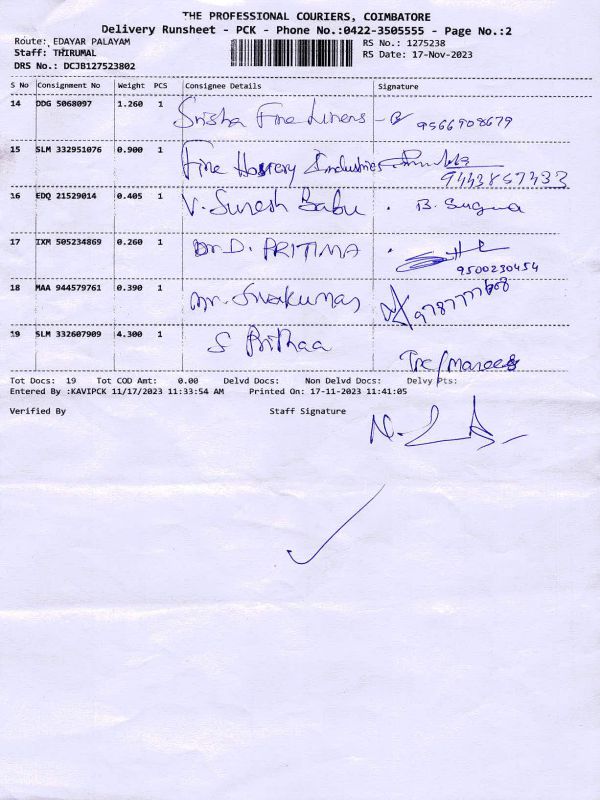 THE PROFESSIONAL COURIERS, COIMBATORE
Delivery Runsheet - PCK - Phone No.:0422-3505555 - Page No.:2
Route: EDAYAR PALAYAM
RS No.: 1275238
Staff: THIRUMAL
RS Date: 17-Nov-2023
DRS No.: DCJB127523802
S No Consignment No Weight PCS Consignee Details Signature
14 DDG 5068097 1.260 1 Srisha Fine Liners 9566908679
15 SLM 332951076 0.900 1 Fine Hosiery Industries
9443857433
16 EDQ 21529014 0.405 1 V. Suresh Babu . B. Suguna
17 IXM 505234869 0.260 1 Dr. D. PRITIMA .
9500230454
18 MAA 944579761 0.390 1 Mr. Sivakumar
19 SLM 332607909 4.300 1 S Prithaa
Tot Docs: 19 Tot COD Amt: 0.00 Delvd Docs: Non Delvd Docs: Delvy Pts:
Entered By :KAVIPCK 11/17/2023 11:33:54 AM Printed On: 17-11-2023 11:41:05
Verified By Staff Signature